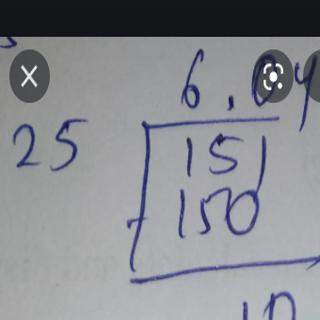 6.04
25 151
- 150
10